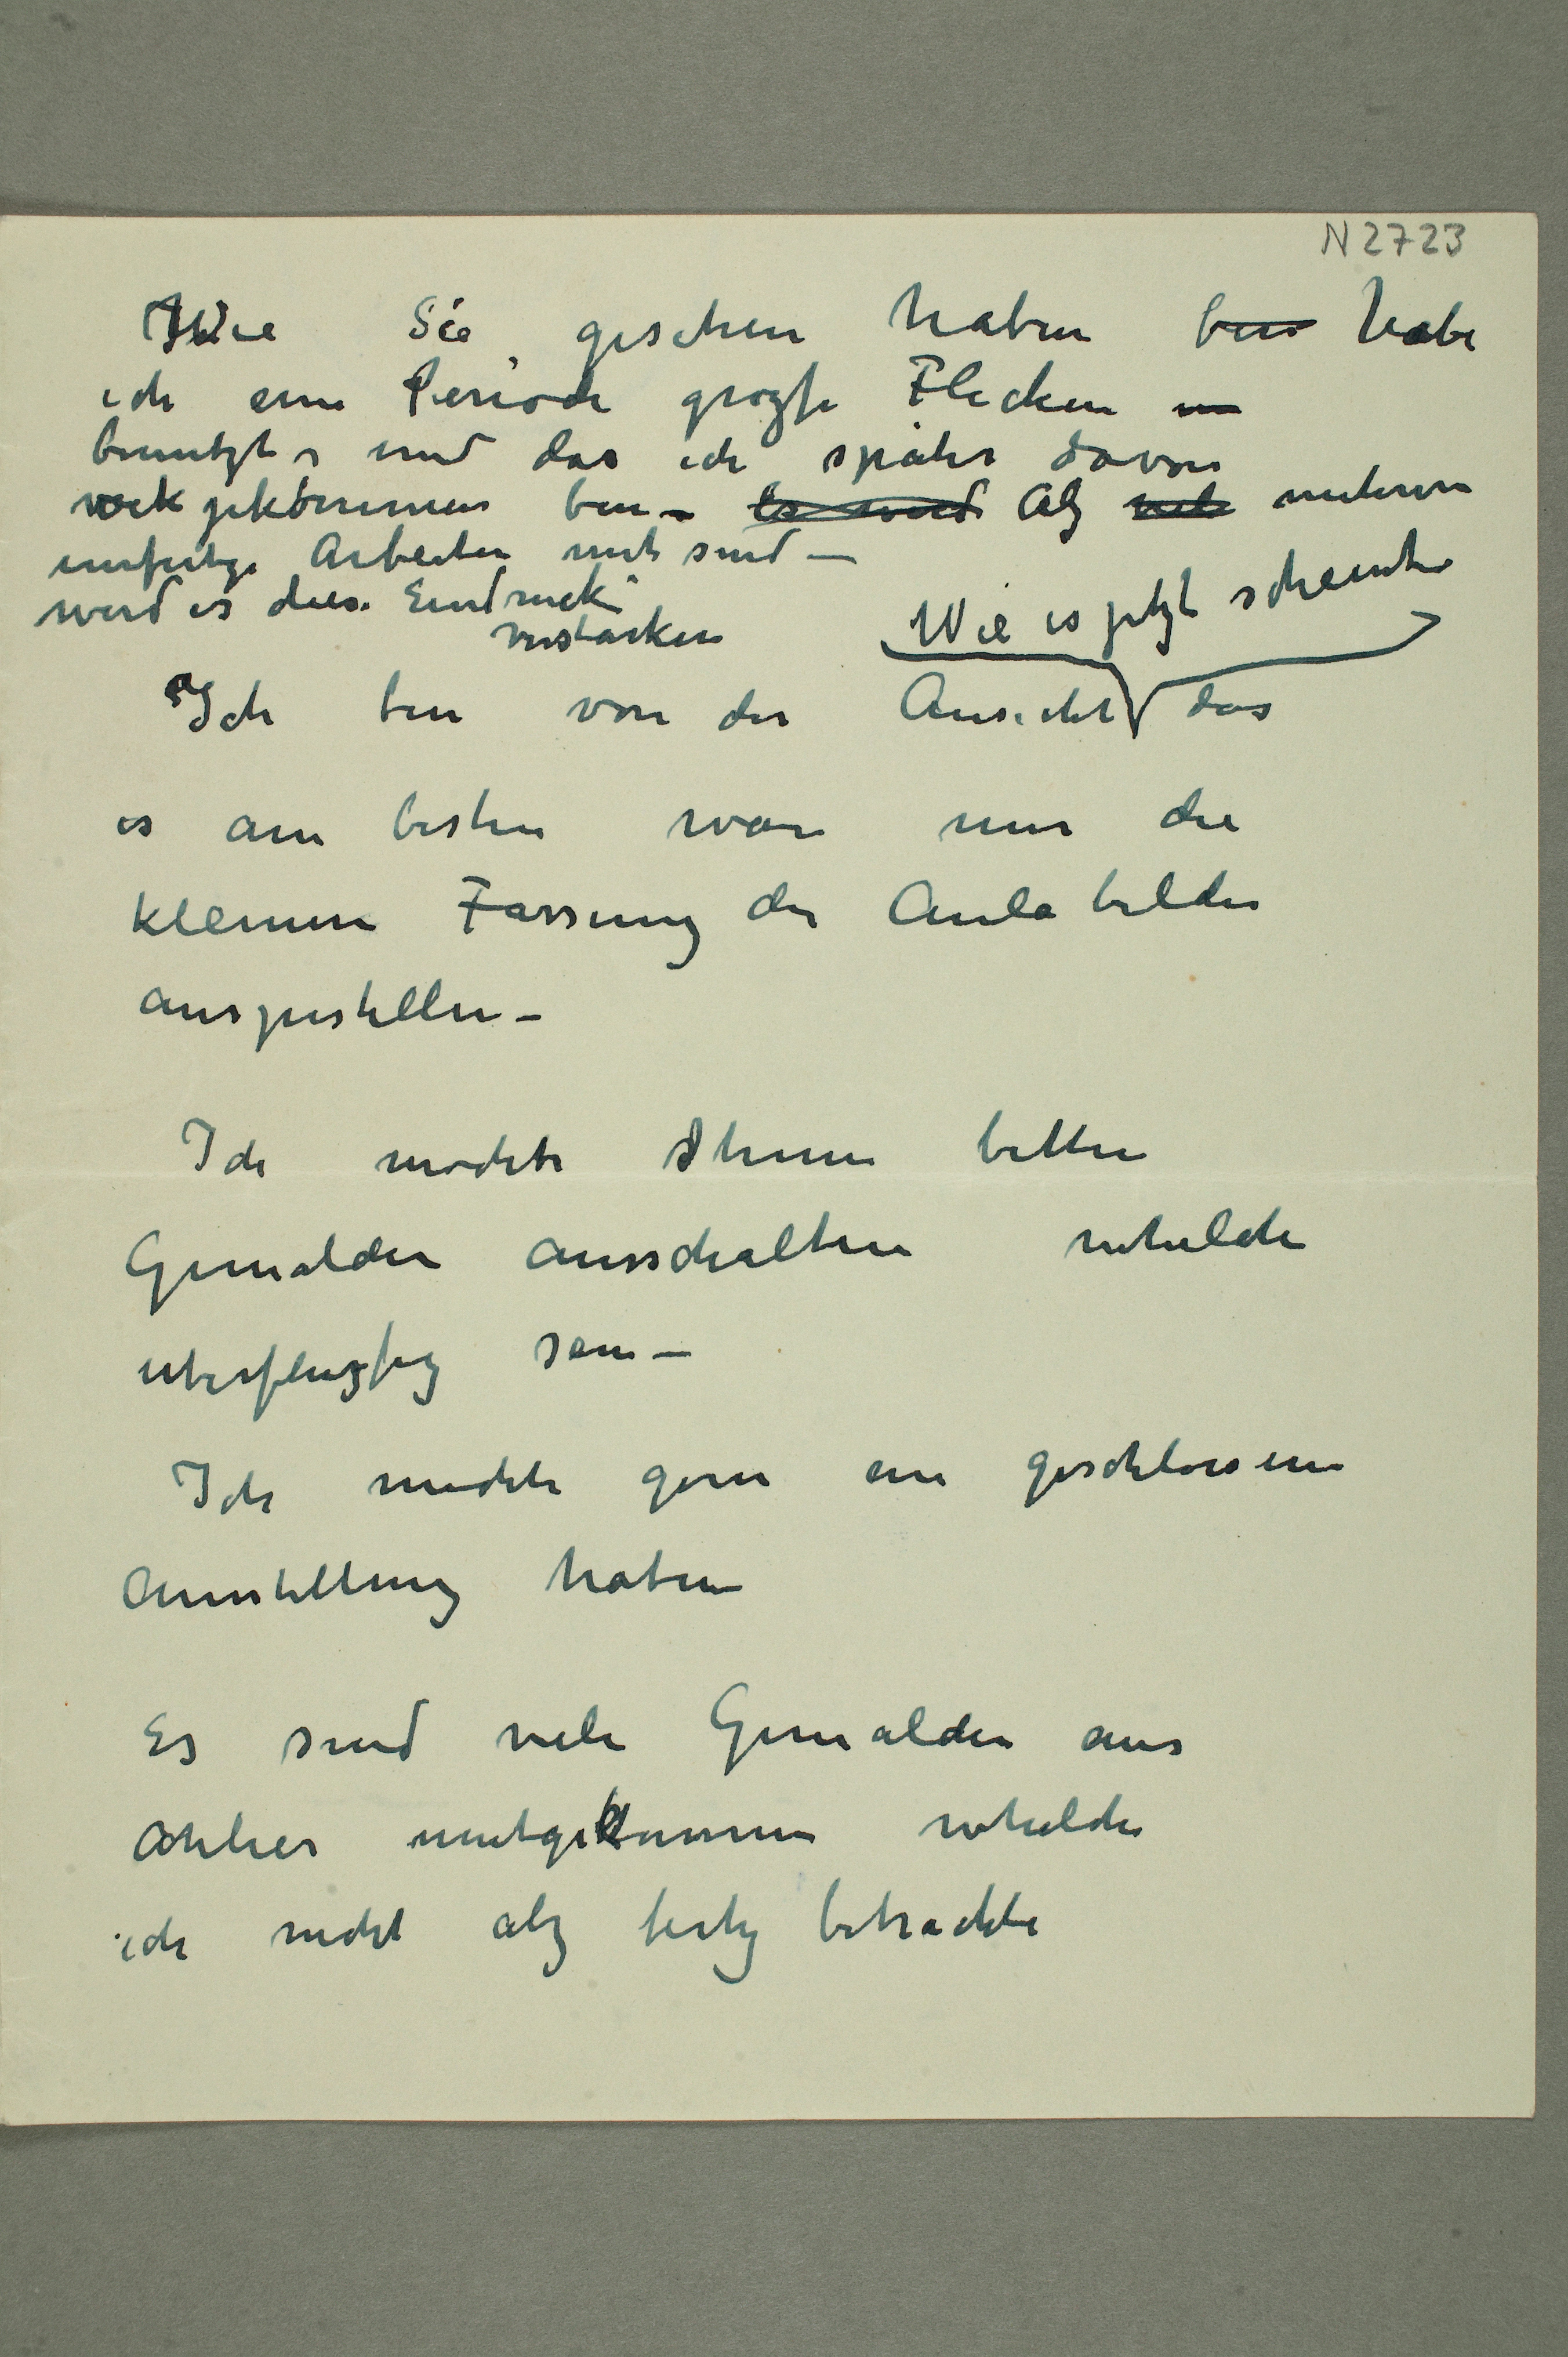 N 2723
Wie Sie gesehen haben bin habe
ich eine Periode grozse Flecken
benutzte und das ich später davon
wekgekommen bin – Es wird Alz viele mehrere
unfertige Arbeiten mit sind –
wird es diese Eindruck
verstarken
Wie es jetzt scheint
Ich bin von der Ansicht das
es am besten wäre nur die
kleinen Fassung der Aula bilder
auszustellen –
Ich möchte Ihnen bitten
Gemälden ausschalten wehlche
uberfluzsig sein –
Ich möchte gern eine geschlossene
Ausstellung haben
Es sind viele Gemälden aus
Atelier mitgekommen wehlche
ich nicht alz fertig betrachte